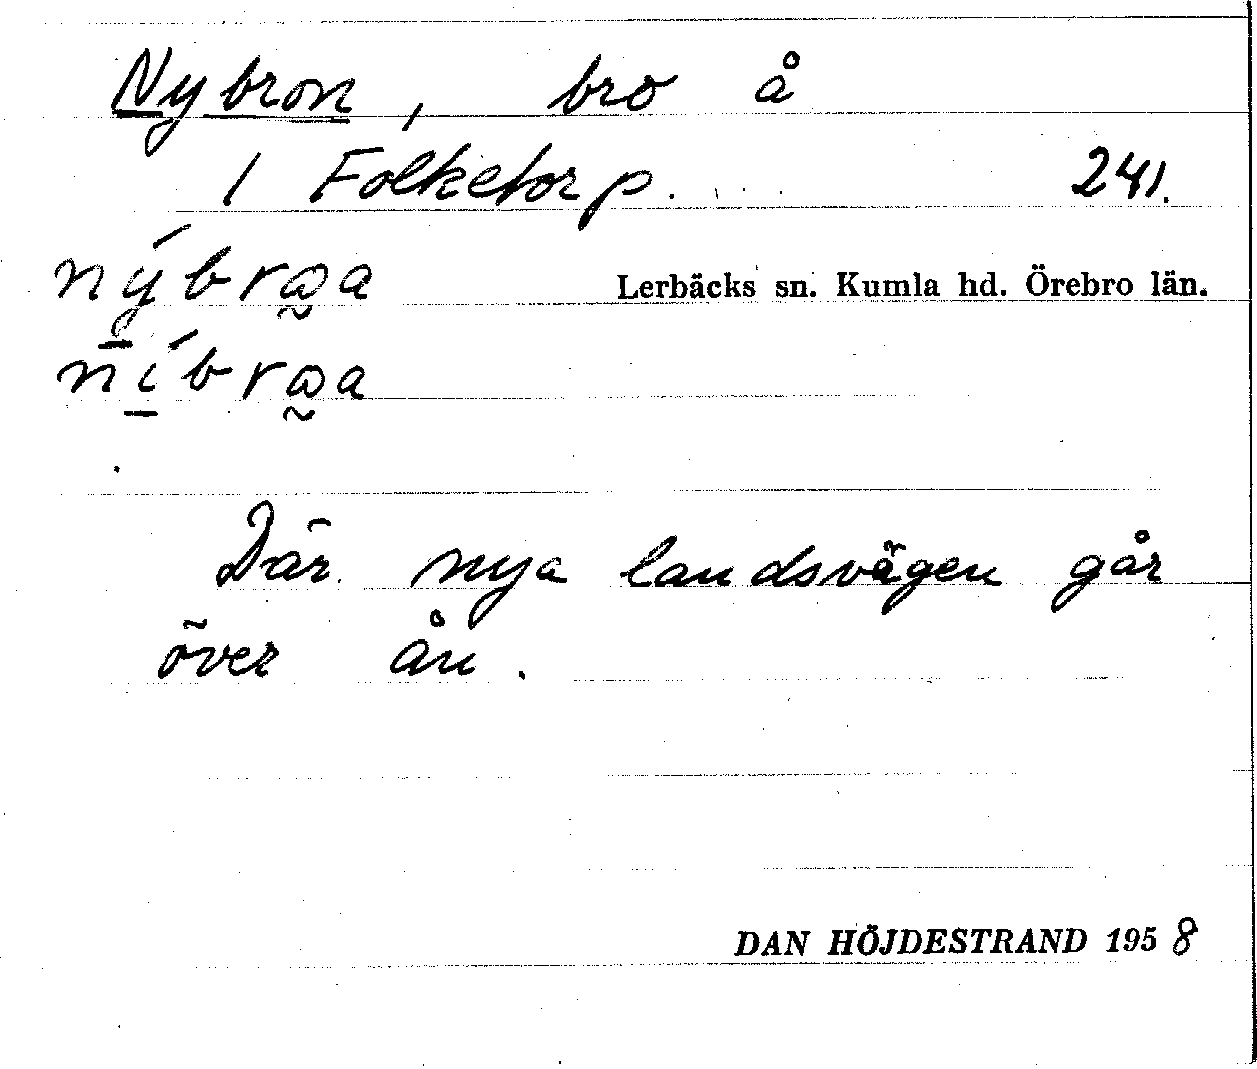 Nybron, bro å
1 Folketorp. 241.
nýbrωa
Lerbäcks sn. Kumla hd. Örebro län.
níbrωa
Där nya landsvägen går
över ån.
DAN HÖJDESTRAND 1958